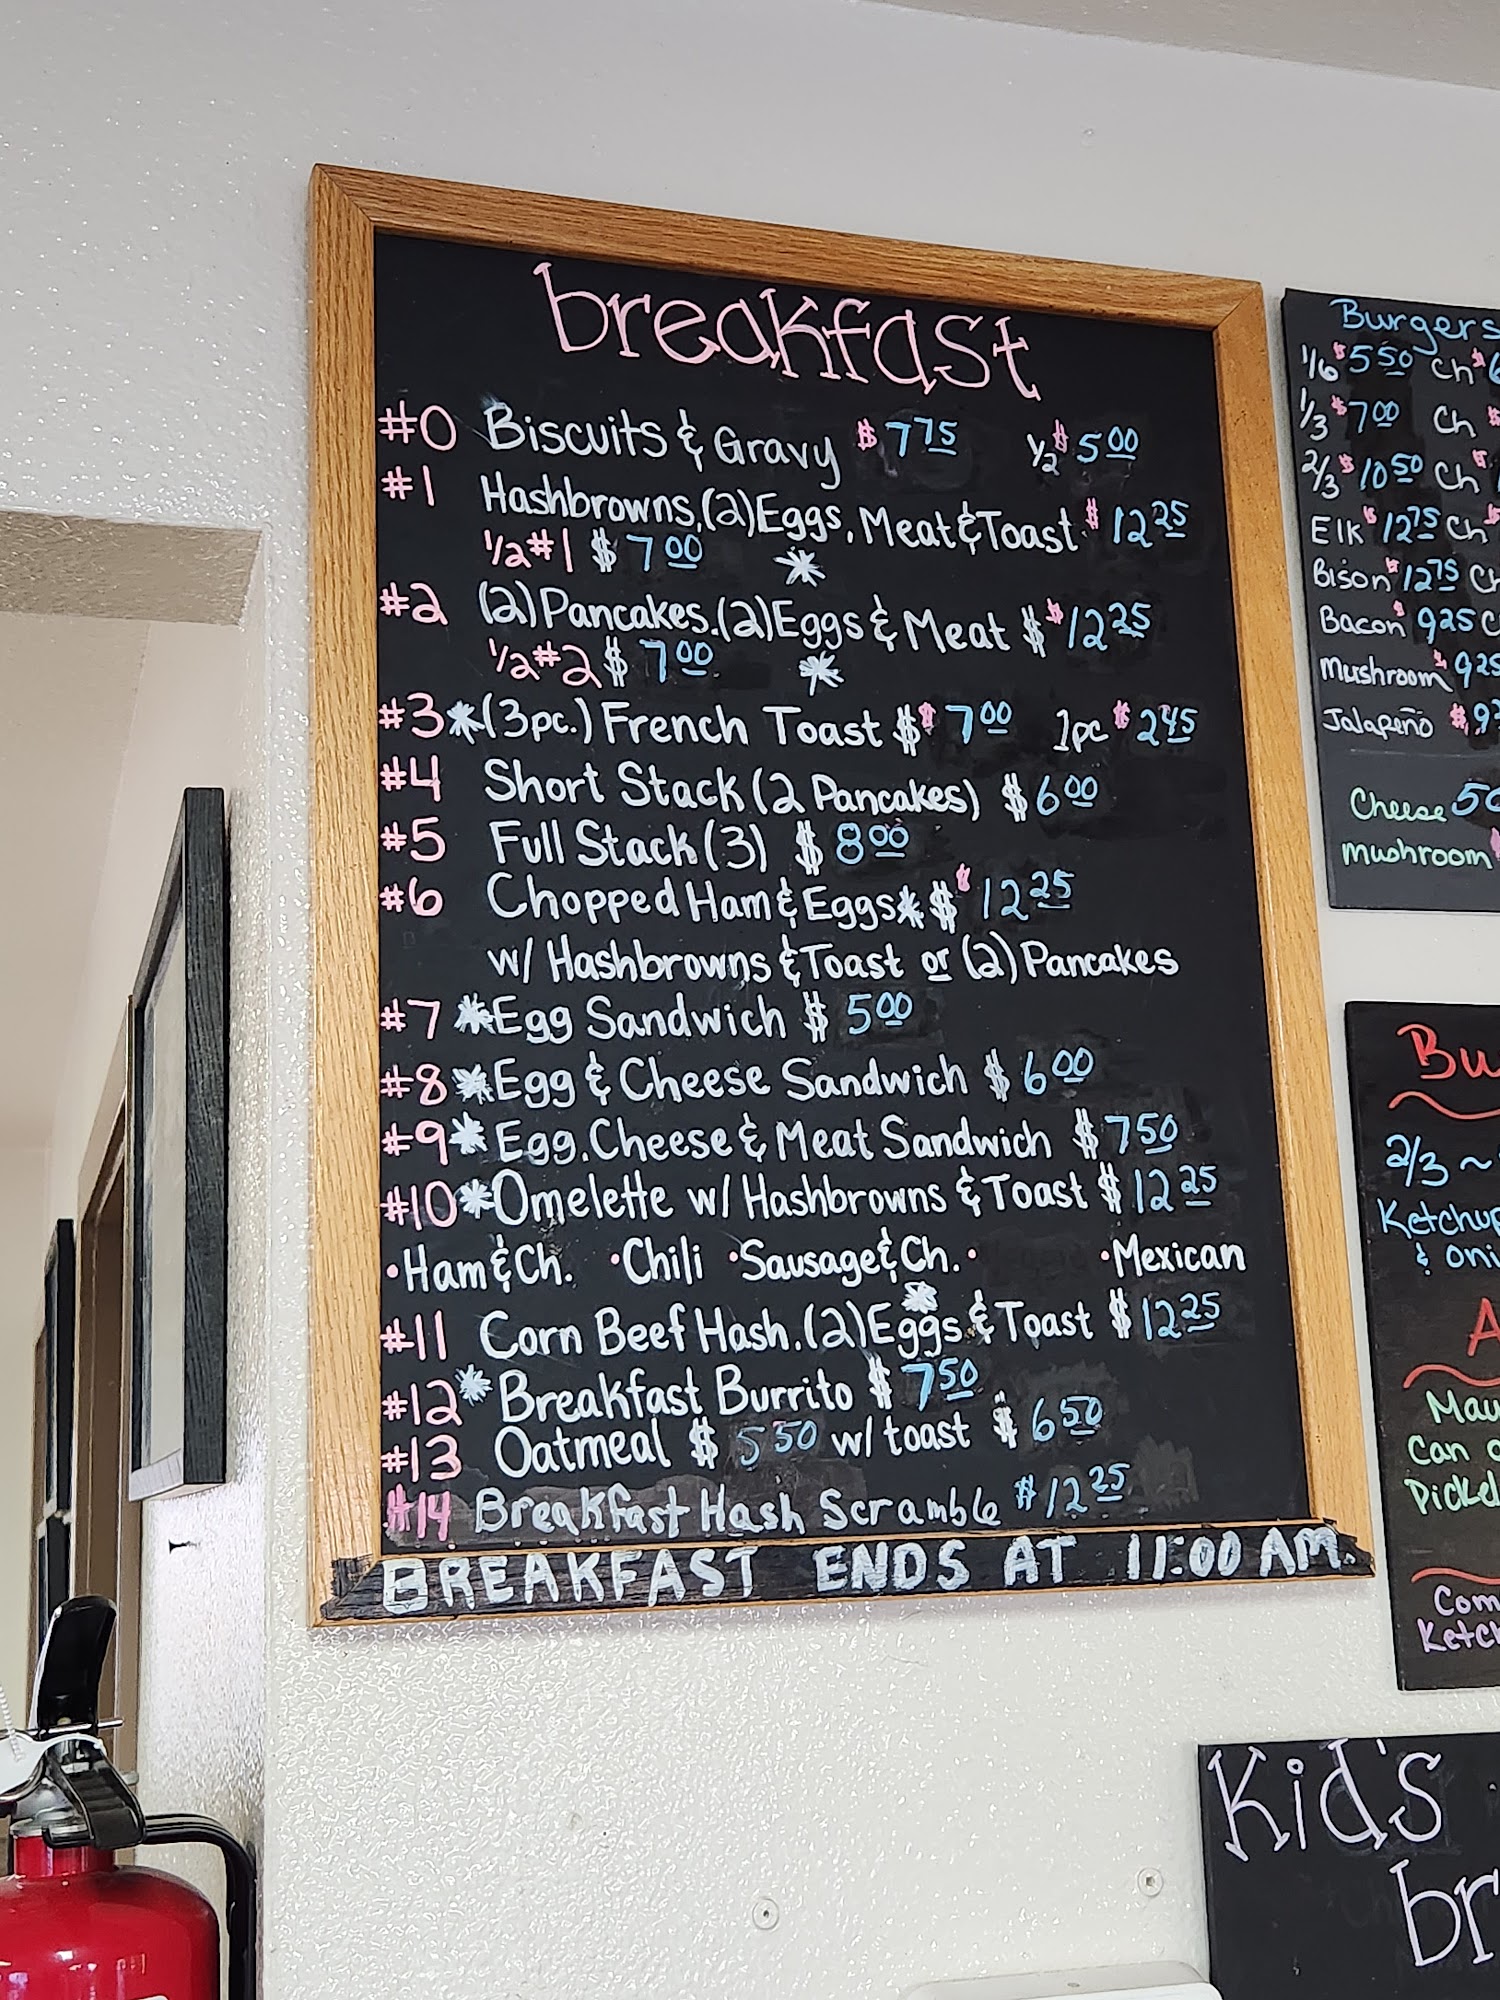 breakfast
#0 Biscuits & Gravy $7.75 1/2 $5.00
#1 Hashbrowns, (2) Eggs, Meat & Toast $12.25
1/2 #1 $7.00 *
#2 (2) Pancakes, (2) Eggs & Meat $12.25
1/2 #2 $7.00 *
#3 * (3pc.) French Toast $7.00 1pc $2.45
#4 Short Stack (2 Pancakes) $6.00
#5 Full Stack (3) $8.00
#6 Chopped Ham & Eggs * $12.25
w/ Hashbrowns & Toast or (2) Pancakes
#7 * Egg Sandwich $5.00
#8 * Egg & Cheese Sandwich $6.00
#9 * Egg, Cheese & Meat Sandwich $7.50
#10 * Omelette w/ Hashbrowns & Toast $12.25
• Ham & Ch. • Chili • Sausage & Ch. • • Mexican
#11 Corn Beef Hash, (2) Eggs * & Toast $12.25
#12 * Breakfast Burrito $7.50
#13 Oatmeal $5.50 w/ toast $6.50
#14 Breakfast Hash Scramble $12.25
BREAKFAST ENDS AT 11:00 AM.
Burgers
1/6 $5.50 Ch $6
1/3 $7.00 Ch $
2/3 $10.50 Ch $
Elk $12.75 Ch $
Bison $12.75 Ch
Bacon $9.25 C
Mushroom $9.25
Jalapeño $9.2
Cheese 50
Mushroom
Bu
2/3 ~
Ketchup
& Oni
A
May
Can
Pickel
Com
Ketch
Kid's
br